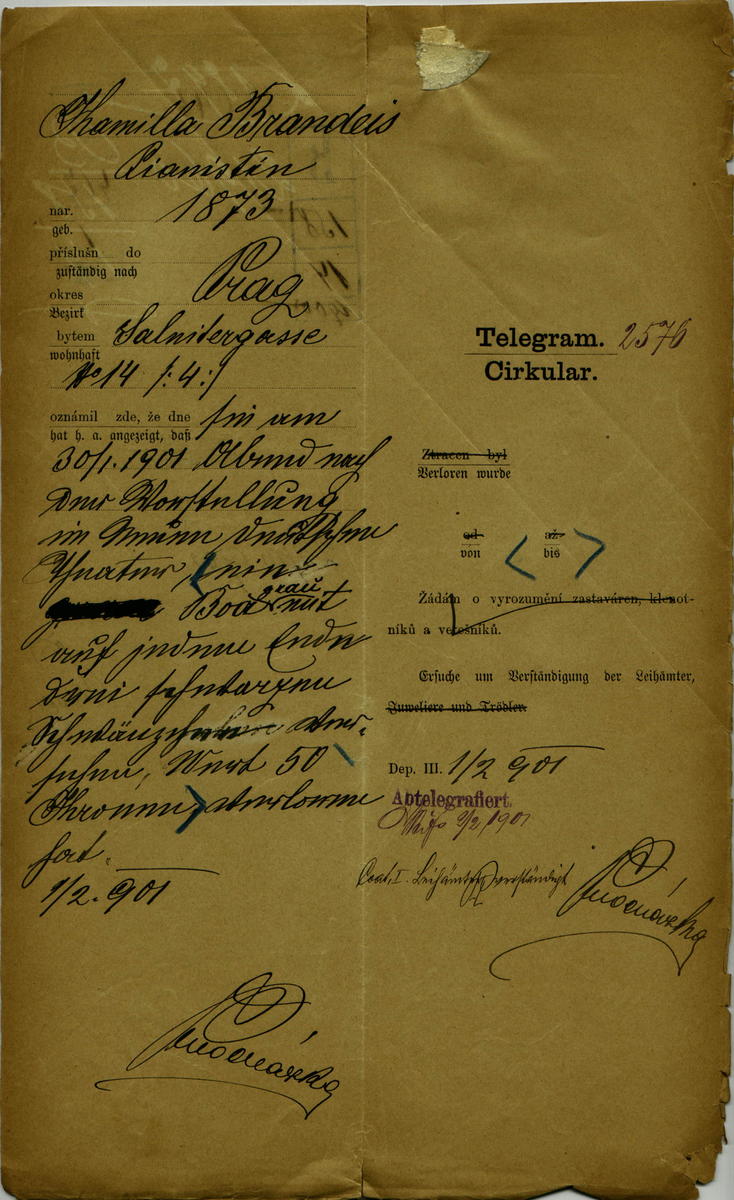 Kamilla Brandeis
Pianistin
nar. 1873
geb.
příslušn do
zuständig nach Prag
okres
Bezirk
bytem Salnitergasse
wohnhaft
No 14 /:4:/
oznámil zde, že dne
hat h. a. angezeigt, daß sie am
30/1. 1901 Abend nach
der Vorstellung
im Neuen Deutschen
Theater, eine
Boa grau mit
auf jedem Ende
drei schwarzen
Schwänzchen ver-
sehen, Wert 50
Kronen, verloren
hat.
1/2. 901
Telegram. 2576
Cirkular.
Ztracen byl
Verloren wurde
od až
von < bis >
Žádám o vyrozumění zastaváren, klenot-
níků a vetešníků.
Ersuche um Verständigung der Leihämter,
Juweliere und Trödler.
Dep. III. 1/2 901
Abtelegrafiert.
2/2 1901
I. Leihämter verständigt